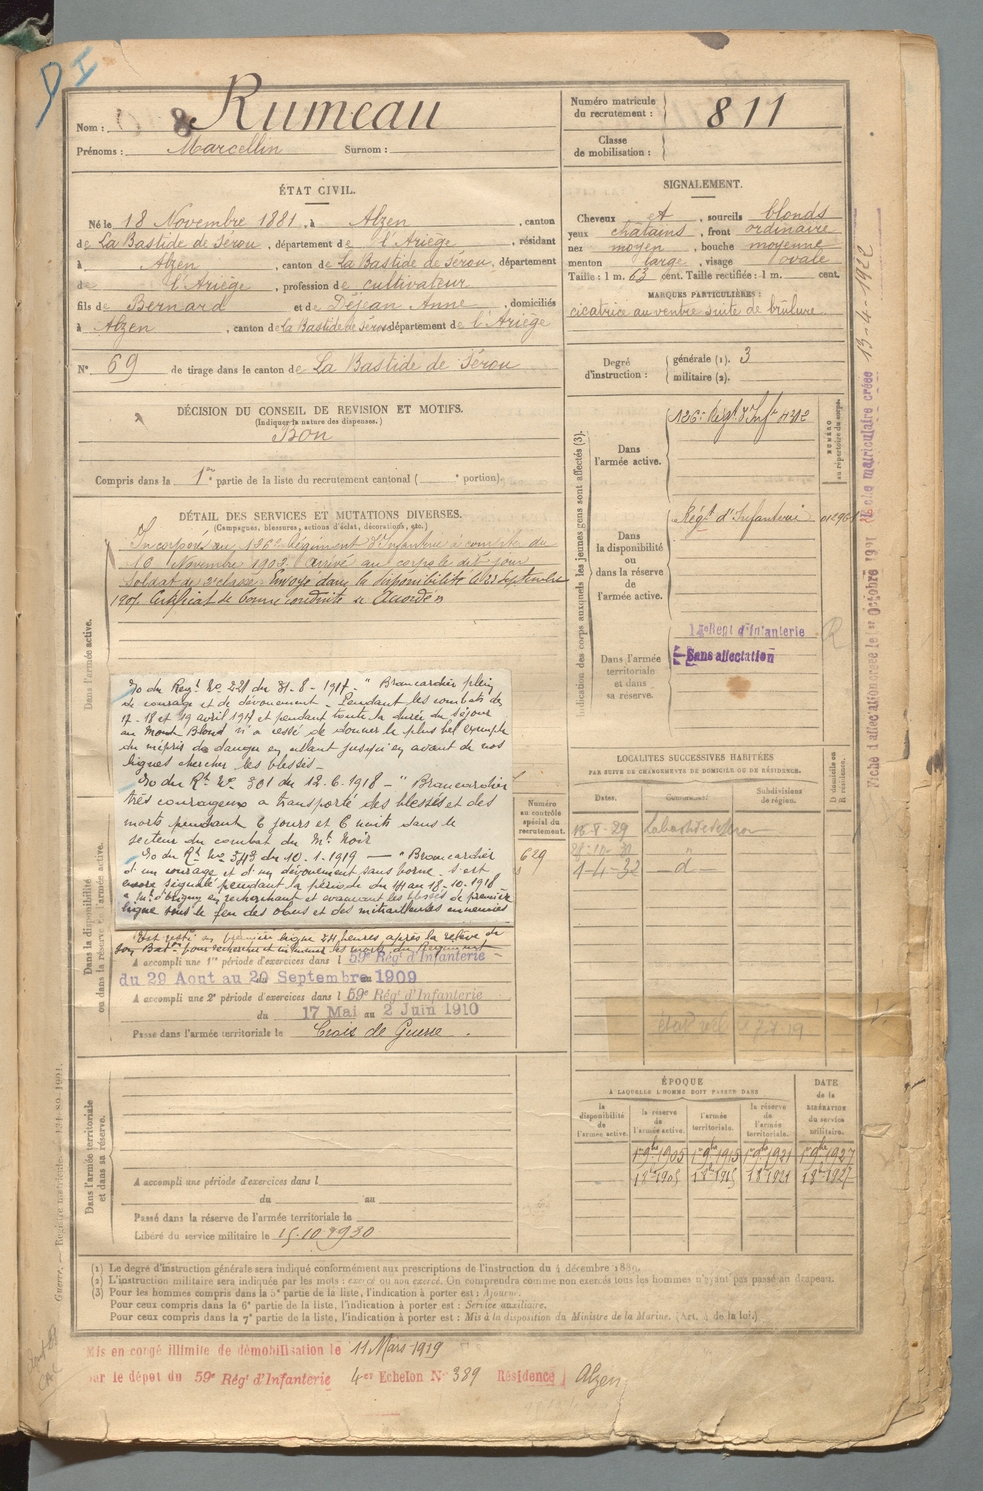 Nom : Rumeau
Prénoms : Marcellin Surnom :
Numéro matricule du recrutement : 811
Classe de mobilisation :
ÉTAT CIVIL.
Né le 18 Novembre 1881, à Alzen, canton
de La Bastide de Sérou, département de l'Ariège, résidant
à Alzen, canton de La Bastide de Sérou, département
de l'Ariège, profession de cultivateur
fils de Bernard et de Déjean Anne, domiciliés
à Alzen, canton de La Bastide de Sérou département de l'Ariège
N° 69 de tirage dans le canton de La Bastide de Sérou
SIGNALEMENT.
Cheveux et, sourcils blonds
yeux châtains, front ordinaire
nez moyen, bouche moyenne
menton large, visage ovale
Taille : 1 m. 63 cent. Taille rectifiée : 1 m. cent.
MARQUES PARTICULIÈRES :
cicatrice au ventre suite de brûlure
Degré d'instruction : générale (1). 3
militaire (2).
DÉCISION DU CONSEIL DE REVISION ET MOTIFS.
(Indiquer la nature des dispenses.)
Bon
Compris dans la 1re partie de la liste du recrutement cantonal ( e portion).
DÉTAIL DES SERVICES ET MUTATIONS DIVERSES.
(Campagnes, blessures, actions d'éclat, décorations, etc.)
Incorporé au 126e Régiment d'Infanterie à compter du
16 Novembre 1902. Arrivé au corps le dit jour
Soldat de 2e classe. Envoyé dans la disponibilité le 23 Septembre
Certificat de bonne conduite
Dans l'armée active.
O du Regt No 221 du 31-8-1917. " Brancardier plein
de courage et de dévouement. Pendant les combats des
17-18 et 19 avril 1917 et pendant toute la durée du séjour
au Mont Blond n'a cessé de donner le plus bel exemple
du mépris du danger en allant jusqu'en avant de nos
lignes chercher les blessés.
O du Rt No 301 du 12-6-1918 - " Brancardier
très courageux a transporté des blessés et des
morts pendant 6 jours et 6 nuits dans le
secteur du combat du Mt Noir
O du Rt No 343 du 10-1-1919 — " Brancardier
d'un courage et d'un dévouement sans borne. S'est
encore signalé pendant la période du 14 au 18-10-1918
en recherchant et évacuant les blessés de première
ligne sous le feu des obus et des mitrailleuses ennemies
Est resté en première ligne 24 heures après la relève de
son Batn pour rechercher et les morts du Régiment
Dans la disponibilité ou dans la réserve de l'armée active.
A accompli une 1re période d'exercices dans l 59e Régt d'Infanterie
du 29 Aout au 20 Septembre 1909
A accompli une 2e période d'exercices dans l 59e Régt d'Infanterie
du 17 Mai au 2 Juin 1910
Passé dans l'armée territoriale le Croix de Guerre.
Numéro au contrôle spécial du recrutement.
629
Indication des corps auxquels les jeunes gens sont affectés (3).
NUMÉRO au répertoire du corps.
Dans l'armée active.
126e Régt d'Infie
Dans la disponibilité ou dans la réserve de l'armée active.
Régt d'Infanterie
Dans l'armée territoriale et dans sa réserve.
Regt d'Infanterie
Sans affectation
LOCALITÉS SUCCESSIVES HABITÉES
PAR SUITE DE CHANGEMENTS DE DOMICILE OU DE RÉSIDENCE.
Dates. Communes. Subdivisions de région. D domicile ou R résidence.
16-8-29
28-10-30 "
1-4-32 — d —
Dans l'armée territoriale et dans sa réserve.
A accompli une période d'exercices dans l
du au
Passé dans la réserve de l'armée territoriale le
Libéré du service militaire le 15.10.1930
ÉPOQUE
À LAQUELLE L'HOMME DOIT PASSER DANS
DATE de la LIBÉRATION du service militaire.
la disponibilité de l'armée active. la réserve de l'armée active. l'armée territoriale. la réserve de l'armée territoriale.
1er 9bre 1905 1er 9bre 1915 1er 9bre 1921 1er 9bre 1927
(1) Le degré d'instruction générale sera indiqué conformément aux prescriptions de l'instruction du 4 décembre 1889.
(2) L'instruction militaire sera indiquée par les mots : exercé ou non exercé. On comprendra comme non exercés tous les hommes n'ayant pas passé au drapeau.
(3) Pour les hommes compris dans la 5e partie de la liste, l'indication à porter est : Ajourné.
Pour ceux compris dans la 6e partie de la liste, l'indication à porter est : Service auxiliaire.
Pour ceux compris dans la 7e partie de la liste, l'indication à porter est : Mis à la disposition du Ministre de la Marine. (Art. 4 de la loi.)
Mis en congé illimité de démobilisation le 11 Mars 1919
par le dépot du 59e Régt d'Infanterie 4er Echelon No 389 Résidence Alzen